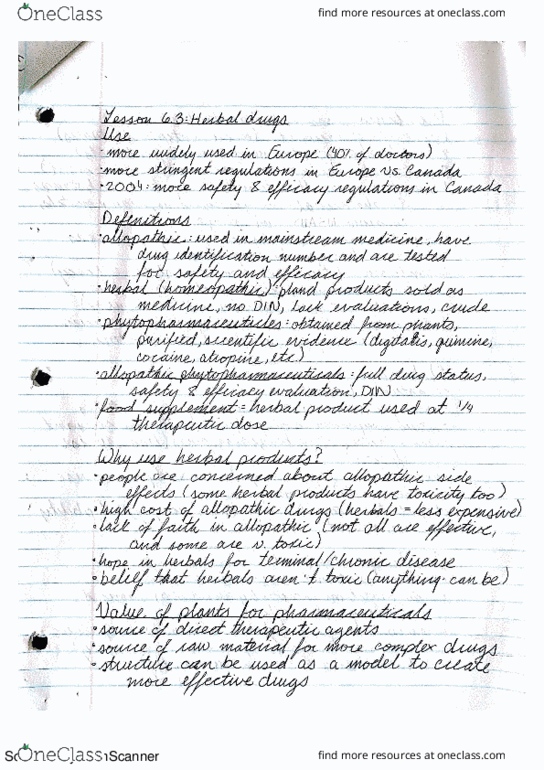 OneClass
find more resources at oneclass.com
Lesson 6.3: Herbal drugs
Use
• more widely used in Europe (40% of doctors)
• more stringent regulations in Europe vs. Canada
• 2004: more safety & efficacy regulations in Canada
Definitions
• allopathic: used in mainstream medicine, have
drug identification number and are tested
for safety and efficacy
• herbal (homeopathic): pland products sold as
medicine, no DIN, lack evaluations, crude
• phytopharmaceuticles: obtained from plants,
purified, scientific evidence (digitalis, quinine,
cocaine, atropine, etc)
• allopathic phytopharmaceuticals: full drug status,
safety & efficacy evaluation, DIN
• food supplement = herbal product used at 1/4
therapeutic dose
Why use herbal products?
• people are concerned about allopathic side
effects (some herbal products have toxicity too)
• high cost of allopathic drugs (herbals = less expensive)
• lack of faith in allopathic (not all are effective,
and some are v. toxic)
• hope in herbals for terminal/chronic disease
• belief that herbals aren't toxic (anything can be)
Value of plants for pharmaceuticals
• source of direct therapeutic agents
• source of raw material for more complex drugs
• structure can be used as a model to create
more effective drugs
OneClass Scanner
find more resources at oneclass.com